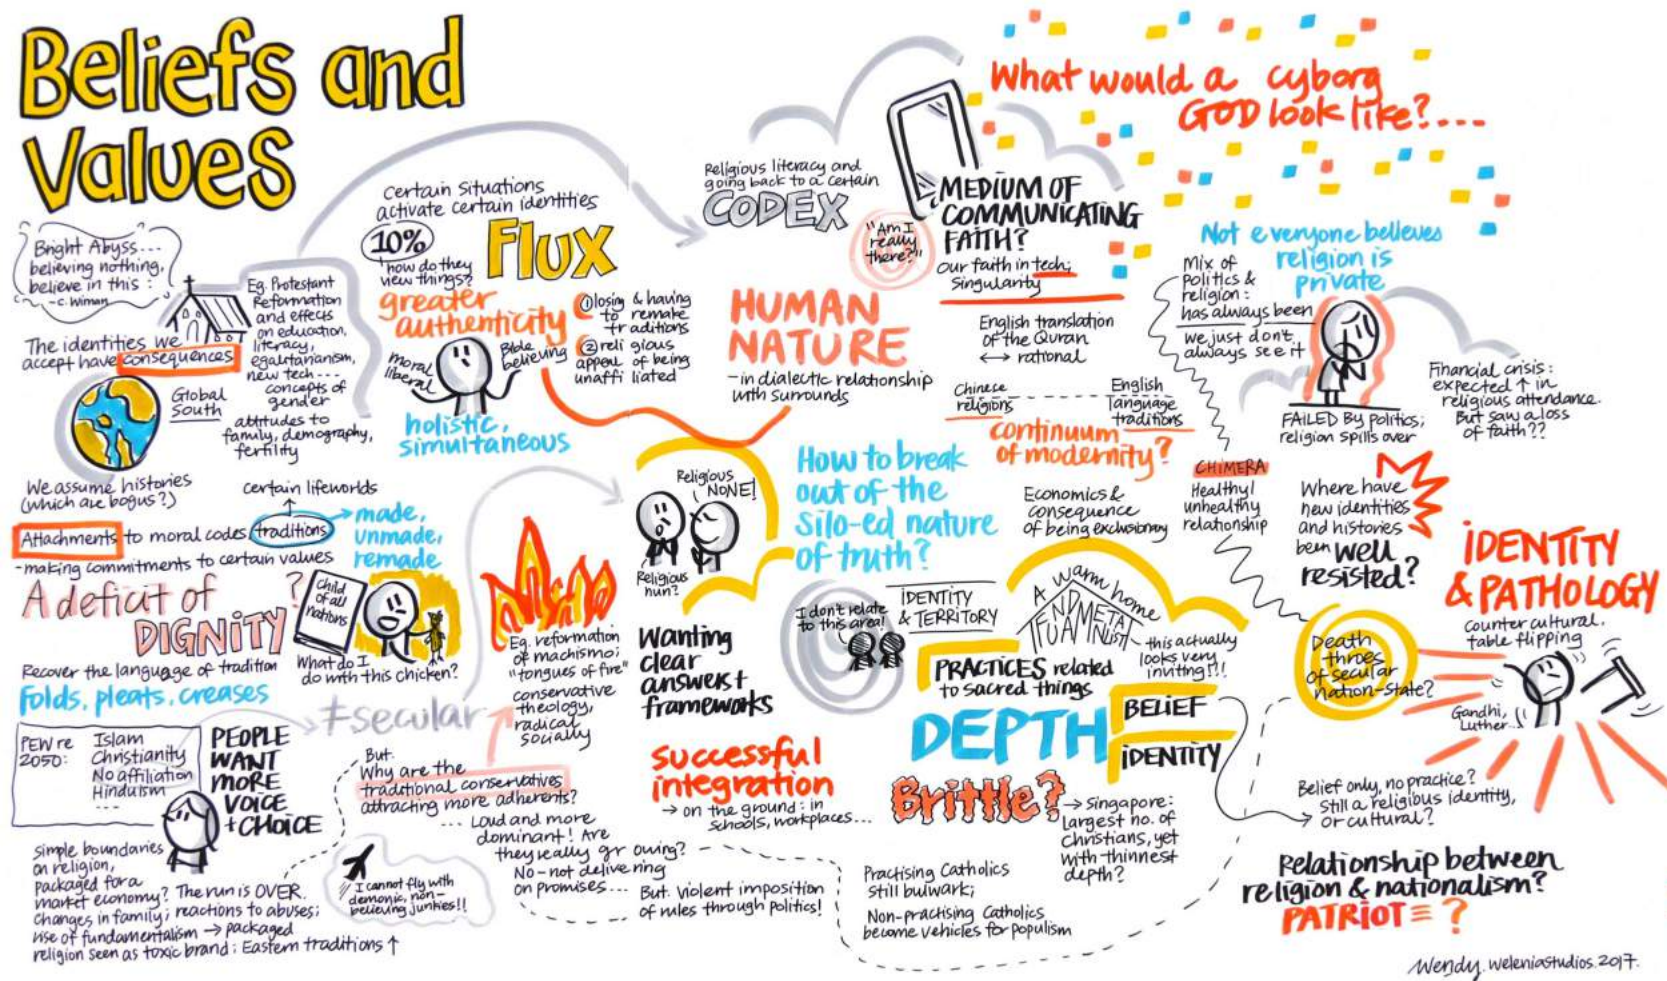 Beliefs and
Values
Bright Abyss...
believing nothing,
believe in this :
~ -C. Wiman
The identities we
accept have consequences
Eg. Protestant
Reformation
and effects
on education,
literacy,
egalitarianism,
new tech...
concepts of
gender
attitudes to
family, demography,
fertility
Global
South
We assume histories
(which are bogus?)
certain lifeworlds
Attachments to moral codes, traditions
- making commitments to certain values
made,
unmade,
remade
A deficit of
DIGNITY ?
Child
of all
nations
What do I
do with this chicken?
Recover the language of tradition
Folds, pleats, creases
PEW re
2050:
Islam
Christianity
No affiliation
Hinduism
...
PEOPLE
WANT
MORE
VOICE
+ CHOICE
≠secular
Simple boundaries
on religion,
packaged for a
market economy? The run is OVER.
Changes in family; reactions to abuses;
rise of fundamentalism → packaged
religion seen as toxic brand: Eastern traditions ↑
But.
Why are the
traditional conservatives
attracting more adherents?
... Loud and more
dominant! Are
they really growing?
No - not delivering
on promises...
But. violent imposition
of rules through politics!
I cannot fly with
demonic, non-
believing junkies!!
Certain situations
activate certain identities
10%
how do they
view things?
FLUX
greater
authenticity
① losing & having
to remake
traditions
② religious
appeal of being
unaffiliated
moral
liberal
Bible
believing
holistic,
simultaneous
Eg. reformation
of machismo;
"tongues of fire"
conservative
theology,
radical
socially
Religious
NONE!
Religious
nun?
Wanting
clear
answers +
frameworks
successful
integration
→ on the ground: in
schools, workplaces...
Religious literacy and
going back to a certain
CODEX
"Am I
really
there?"
MEDIUM OF
COMMUNICATING
FAITH?
Our faith in tech;
Singularity
HUMAN
NATURE
- in dialectic relationship
with surrounds
English translation
of the Quran
↔ rational
Chinese
religions
English
language
traditions
continuum
of modernity?
How to break
out of the
Silo-ed nature
of truth?
Economics &
consequence
of being exclusionary
I don't relate
to this area!
IDENTITY
& TERRITORY
A warm home
FUNDAMENTALIST
this actually
looks very
inviting!!!
PRACTICES related
to sacred things
DEPTH
BELIEF
IDENTITY
Brittle?
→ Singapore:
largest no. of
Christians, yet
with thinnest
depth?
Practising Catholics
still bulwark;
Non-practising Catholics
become vehicles for populism
What would a cyborg
GOD look like?...
Not everyone believes
religion is
private
Mix of
politics &
religion:
has always been
we just don't
always see it
FAILED BY politics;
religion spills over
Financial crisis:
expected ↑ in
religious attendance.
But saw a loss
of faith??
CHIMERA
Healthy/
unhealthy
relationship
Where have
new identities
and histories
been well
resisted?
IDENTITY
& PATHOLOGY
counter cultural.
table flipping
Gandhi,
Luther...
Death
throes
of secular
nation-state?
Belief only, no practice?
Still a religious identity,
or cultural?
Relationship between
religion & nationalism?
PATRIOT ≡ ?
Wendy. weleniastudios. 2017.